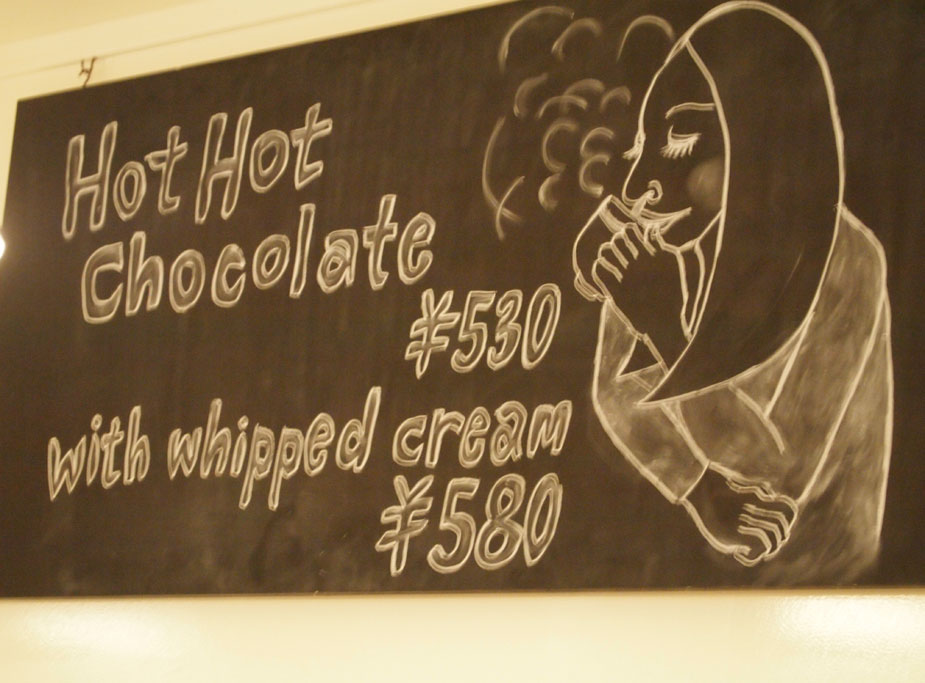 Hot Hot
Chocolate
¥530
with whipped cream
¥580